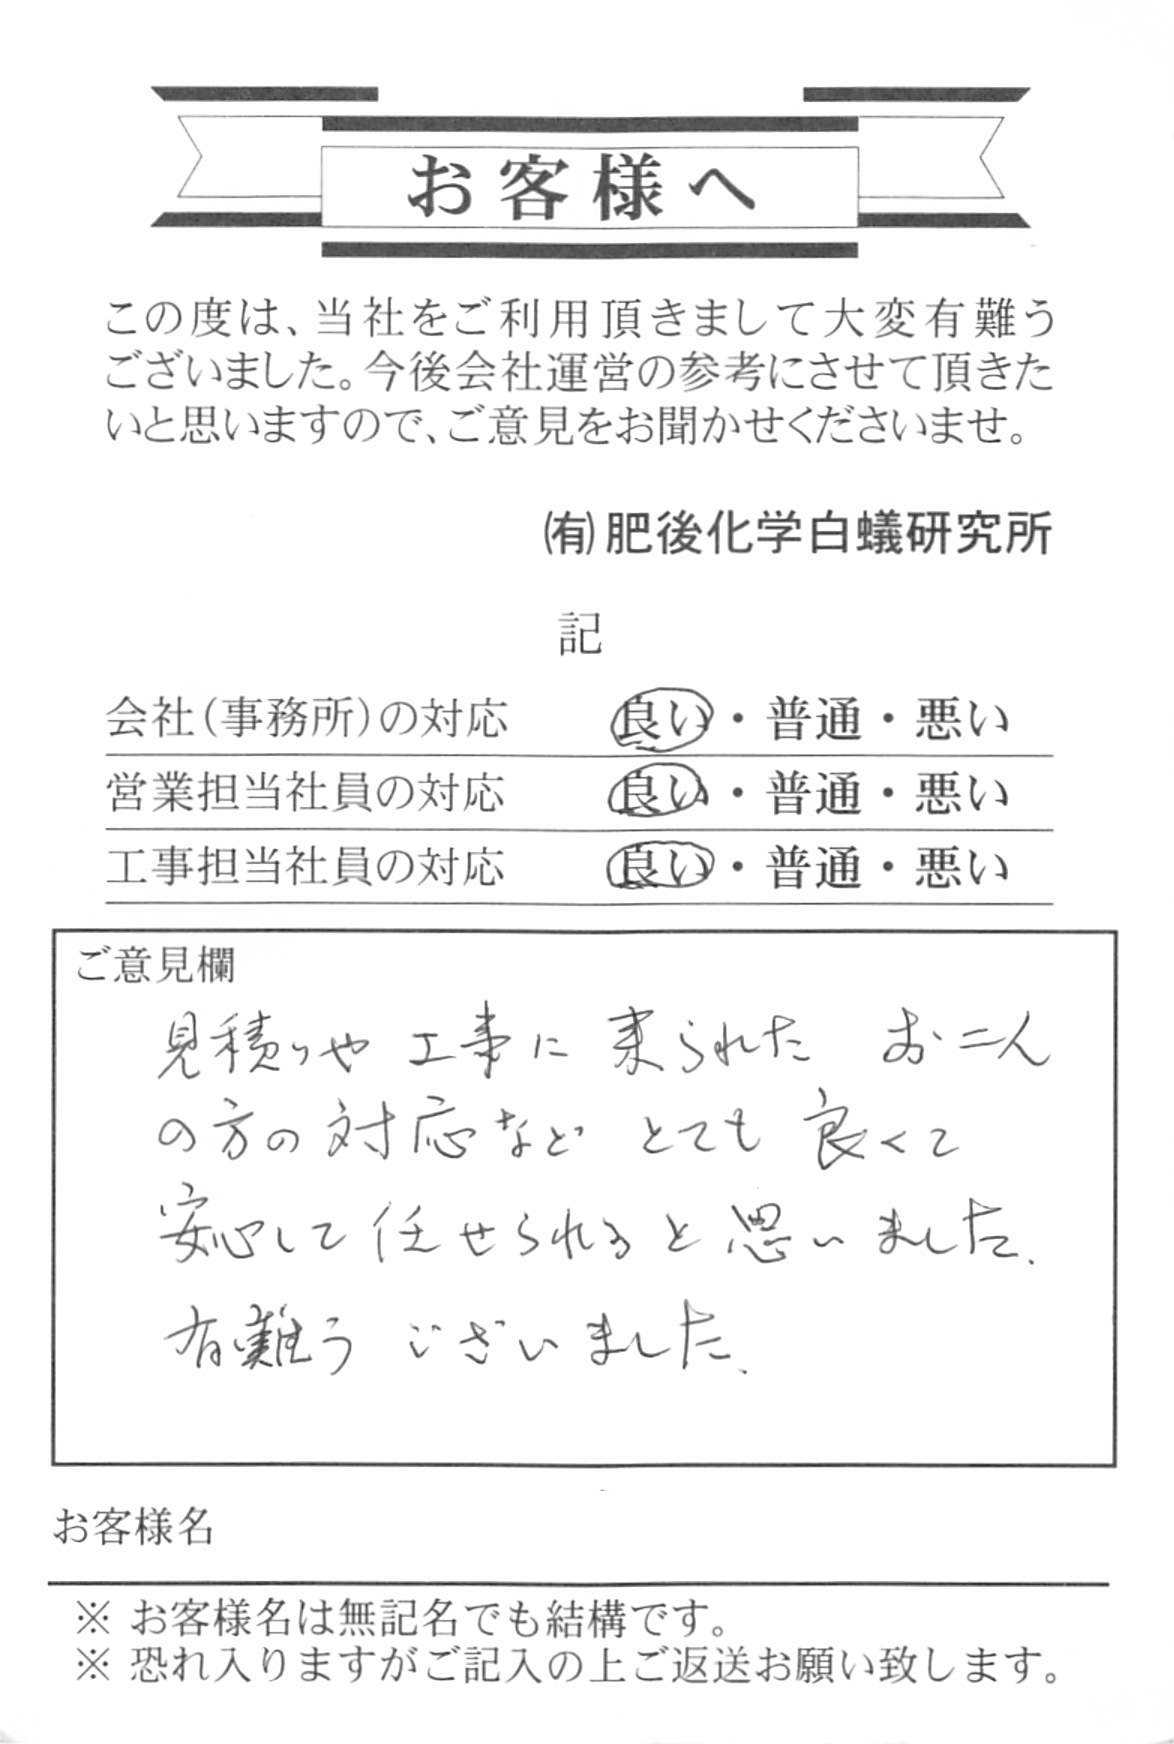 お客様へ
この度は、当社をご利用頂きまして大変有難う
ございました。今後会社運営の参考にさせて頂きた
いと思いますので、ご意見をお聞かせくださいませ。
㈲肥後化学白蟻研究所
記
会社(事務所)の対応 良い・普通・悪い
営業担当社員の対応 良い・普通・悪い
工事担当社員の対応 良い・普通・悪い
ご意見欄
見積りや工事に来られた お二人
の方の対応など とても良くて
安心して任せられると思いました.
有難うございました.
お客様名
※ お客様名は無記名でも結構です。
※ 恐れ入りますがご記入の上ご返送お願い致します。